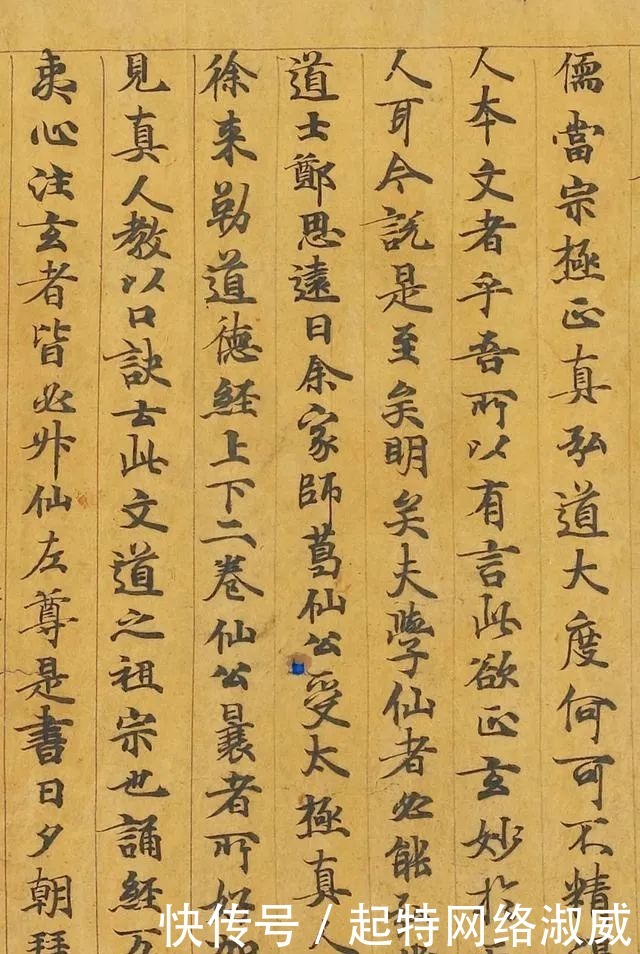 儒當宗極正真弘道大度何可不精
人本文者乎吾所以有言此欲正玄妙於
人耳今説是至矣明矣夫學仙者必能
道士鄭思遠曰余家師葛仙公受太極真人
徐来勒道德經上下二卷仙公曩者所
見真人教以口訣云此文道之祖宗也誦經万
夷心注玄者皆必升仙左尊是書日夕朝拜
快传号/起特网络淑威